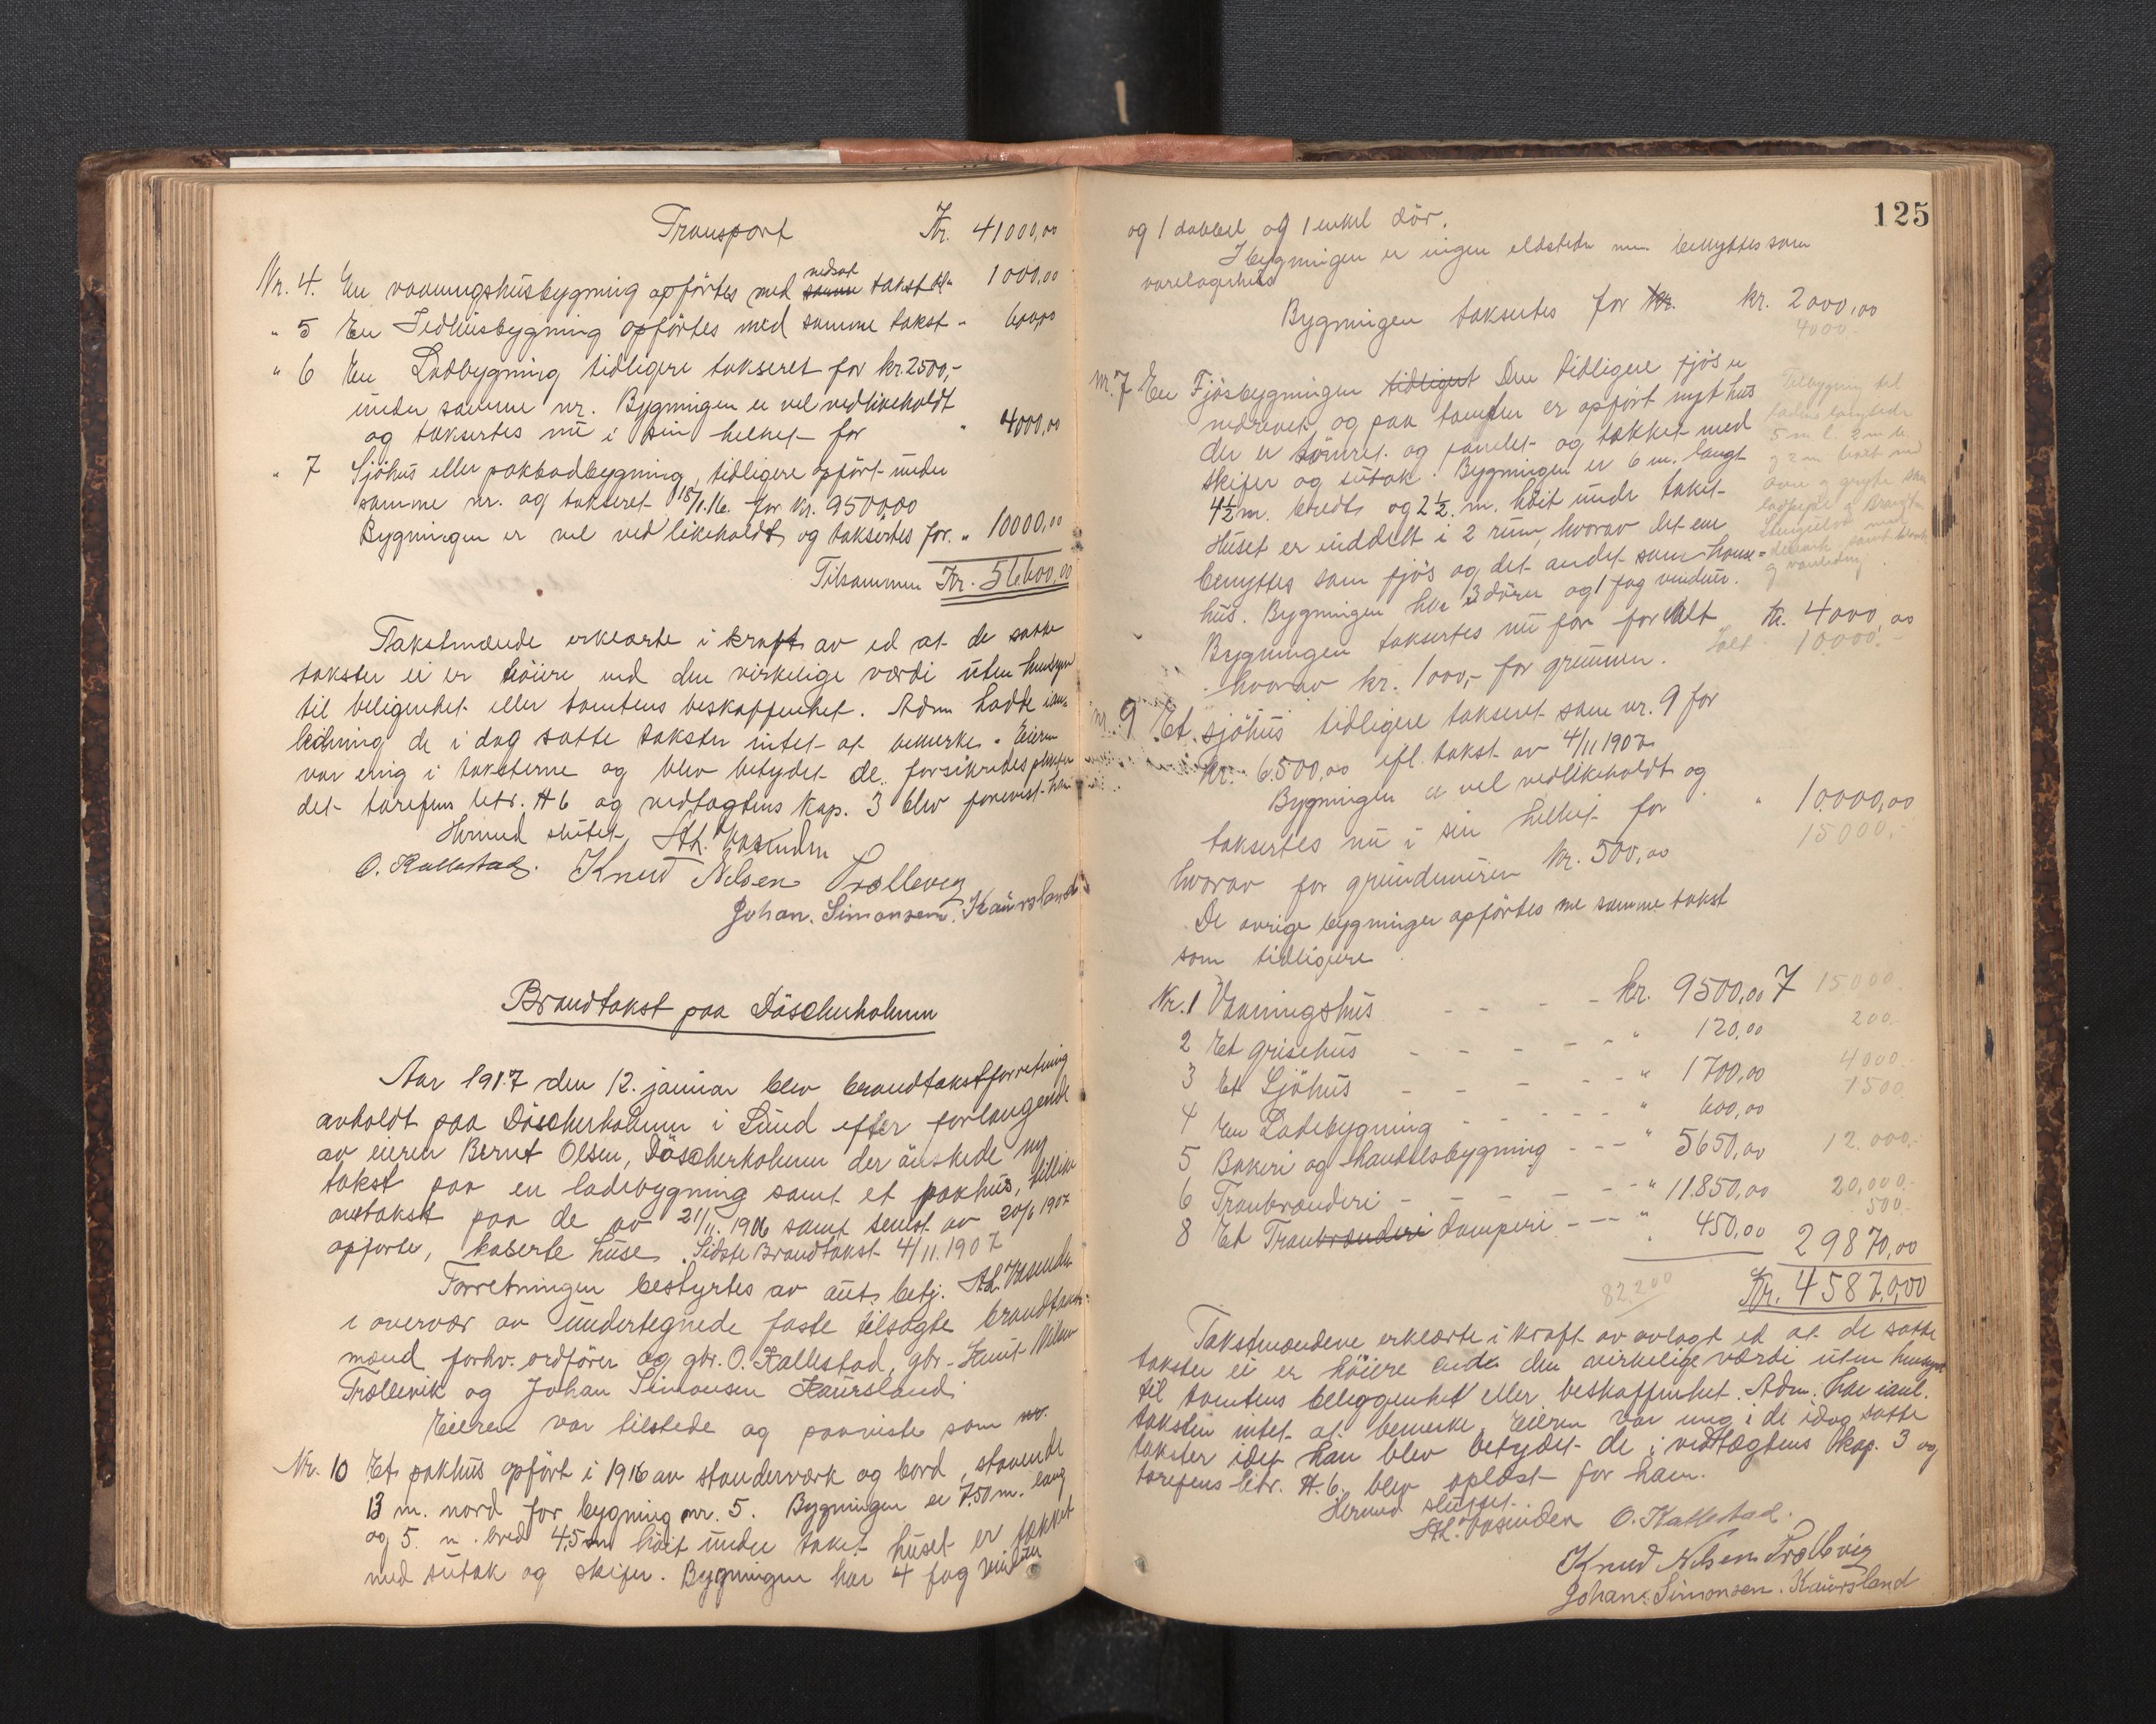 Transport Kr. 41000,00
Nr. 4. En vaaningshusbygning opførtes med nedsat samme takst kr. 1000,00
" 5 En Ildhusbygning opførtes med samme takst " 600,00
" 6 En Ladbygning tidligere takseret for kr. 2500,-
under samme nr. Bygningen er vel vedlikeholdt
og taksertes nu i sin helhet for " 4000,00
" 7 Sjøhus eller pakbodbygning, tidligere opført under
samme nr. og takseret 18/1.16. for kr. 9500,00
Bygningen er vel vedlikeholdt og taksertes for. " 10000,00
Tilsammen Kr. 56600,00
Takstmænde erklærte i kraft av ed at de satte
takster ei er høiere end den virkelige værdi uten hensyn
til beligenhet eller tomtens beskaffenhet. Adm hadde ian-
ledning de i dag satte takster intet at bemerke. Eieren
var enig i taksterne og blev betydet de forsikredes plikter
det tarefens litr. A 6 og vedtægtens kap. 3 blev forevist ham
Hermed sluttet, A.L. Vasenden
O. Kallestad. Knud Nilsen Trællevig
Johan. Simonsen. Kaursland
Brandtakst paa Döscherholmen
Aar 1917 den 12. januar blev brandtakstforretning
avholdt paa Döscherholmen i Sund efter forlangende
av eieren Bernt Olsen, Döscherholmen der ønskede ny
takst paa en ladebygning samt et pakhus, tillike
omtakst paa de av 21/11. 1906 samt senest av 20/6 1907
opførte, kaserte huse. Sidste Brandtakst 4/11. 1907
Forretningen bestyrtes av aut. betj. A.L. Vasenden
i overvær av undertegnede faste tilsagte brandtakst-
mænd forhv. ordfører og gbr. O. Kallestad, gbr. Knut Nilsen
Trællevik og Johan Simonsen Kaursland.
Eieren var tilstede og paaviste som nr.
Nr. 10 Et pakhus opført i 1916 av standerværk og bord, staaende
13 m. nord for bygning nr. 5. Bygningen er 7.50 m. lang
og 5. m. bred 4.5 m høit under taket huset er tækket
med sutak og skifer. Bygningen har 4 fag vinduer
125
og 1 dobbel og 1 enkel dør.
I bygningen er ingen eldsteder men benyttes som
varelagerhus
Bygningen taksertes for kr. kr. 2000,00
4000.-
nr. 7 En Fjøsbygningen tidligert Den tidligere fjøs er
nedrevet og paa tomten er opført nyt hus
der er tømret og panelet og tækket med
skifer og sutak. Bygningen er 6 m. langt
4½ m. bredt og 2½ m. høit under taket
Huset er inddelt i 2 rum, hvorav det ene
benyttes som fjøs og det andet som hønse=
hus. Bygningen har 3 døren og 1 fag vinduer.
Bygningen taksertes nu for for halt kr. 4000,00
hvorav kr. 1000,- for grunnen. Halt 10000.-
Tilbygning til
5 m l. 2 m b.
og 2 m høiet med
og vanledning
nr. 9 Et sjøhus tidligere takseret som nr. 9 for
kr. 6.500,00 ifl. takst av 4/11 1907
Bygningen er vel vedlikeholdt og
taksertes nu i sin helhet for " 10000,00
15000.-
hvorav for grundmuren kr. 500,00
De øvrige bygninger opførtes me samme takst
som tidligere.
Nr. 1 Vaaningshus - - - - kr. 9500,00 7 15000.
2 Et grisehus - - - - - " 120,00 200.-
3 Et Sjøhus - - - - - " 1700,00 4000.-
4 En Ladebygning - - - - - " 600,00 1500
5 Bakeri og handelsbygning - - - " 5650,00 12.000,-
6 Tranbrænderi - - - - - " 11.850,00 20,000.-
8 Et Tranbrænderi damperi - - - " 450,00 500.-
29870,00
82.200
Kr. 45870,00
Takstmændene erklærte i kraft av avlagt ed at de satte
takster ei er høiere ende den virkelige værdi uten hensyn
til tomtens beleggenhet eller beskaffenhet. Adm. har ianl.
taksten intet at bemerke. Eieren var enig i de idag satte
takster idet han blev betydet de i vedtægtens kap. 3 og
tarefens litr. A. 6. blev oplæst for ham.
Hermed sluttet.
A.L. Vasenden O. Kallestad.
Knud Nilsen Trællevig
Johan. Simonsen. Kaursland